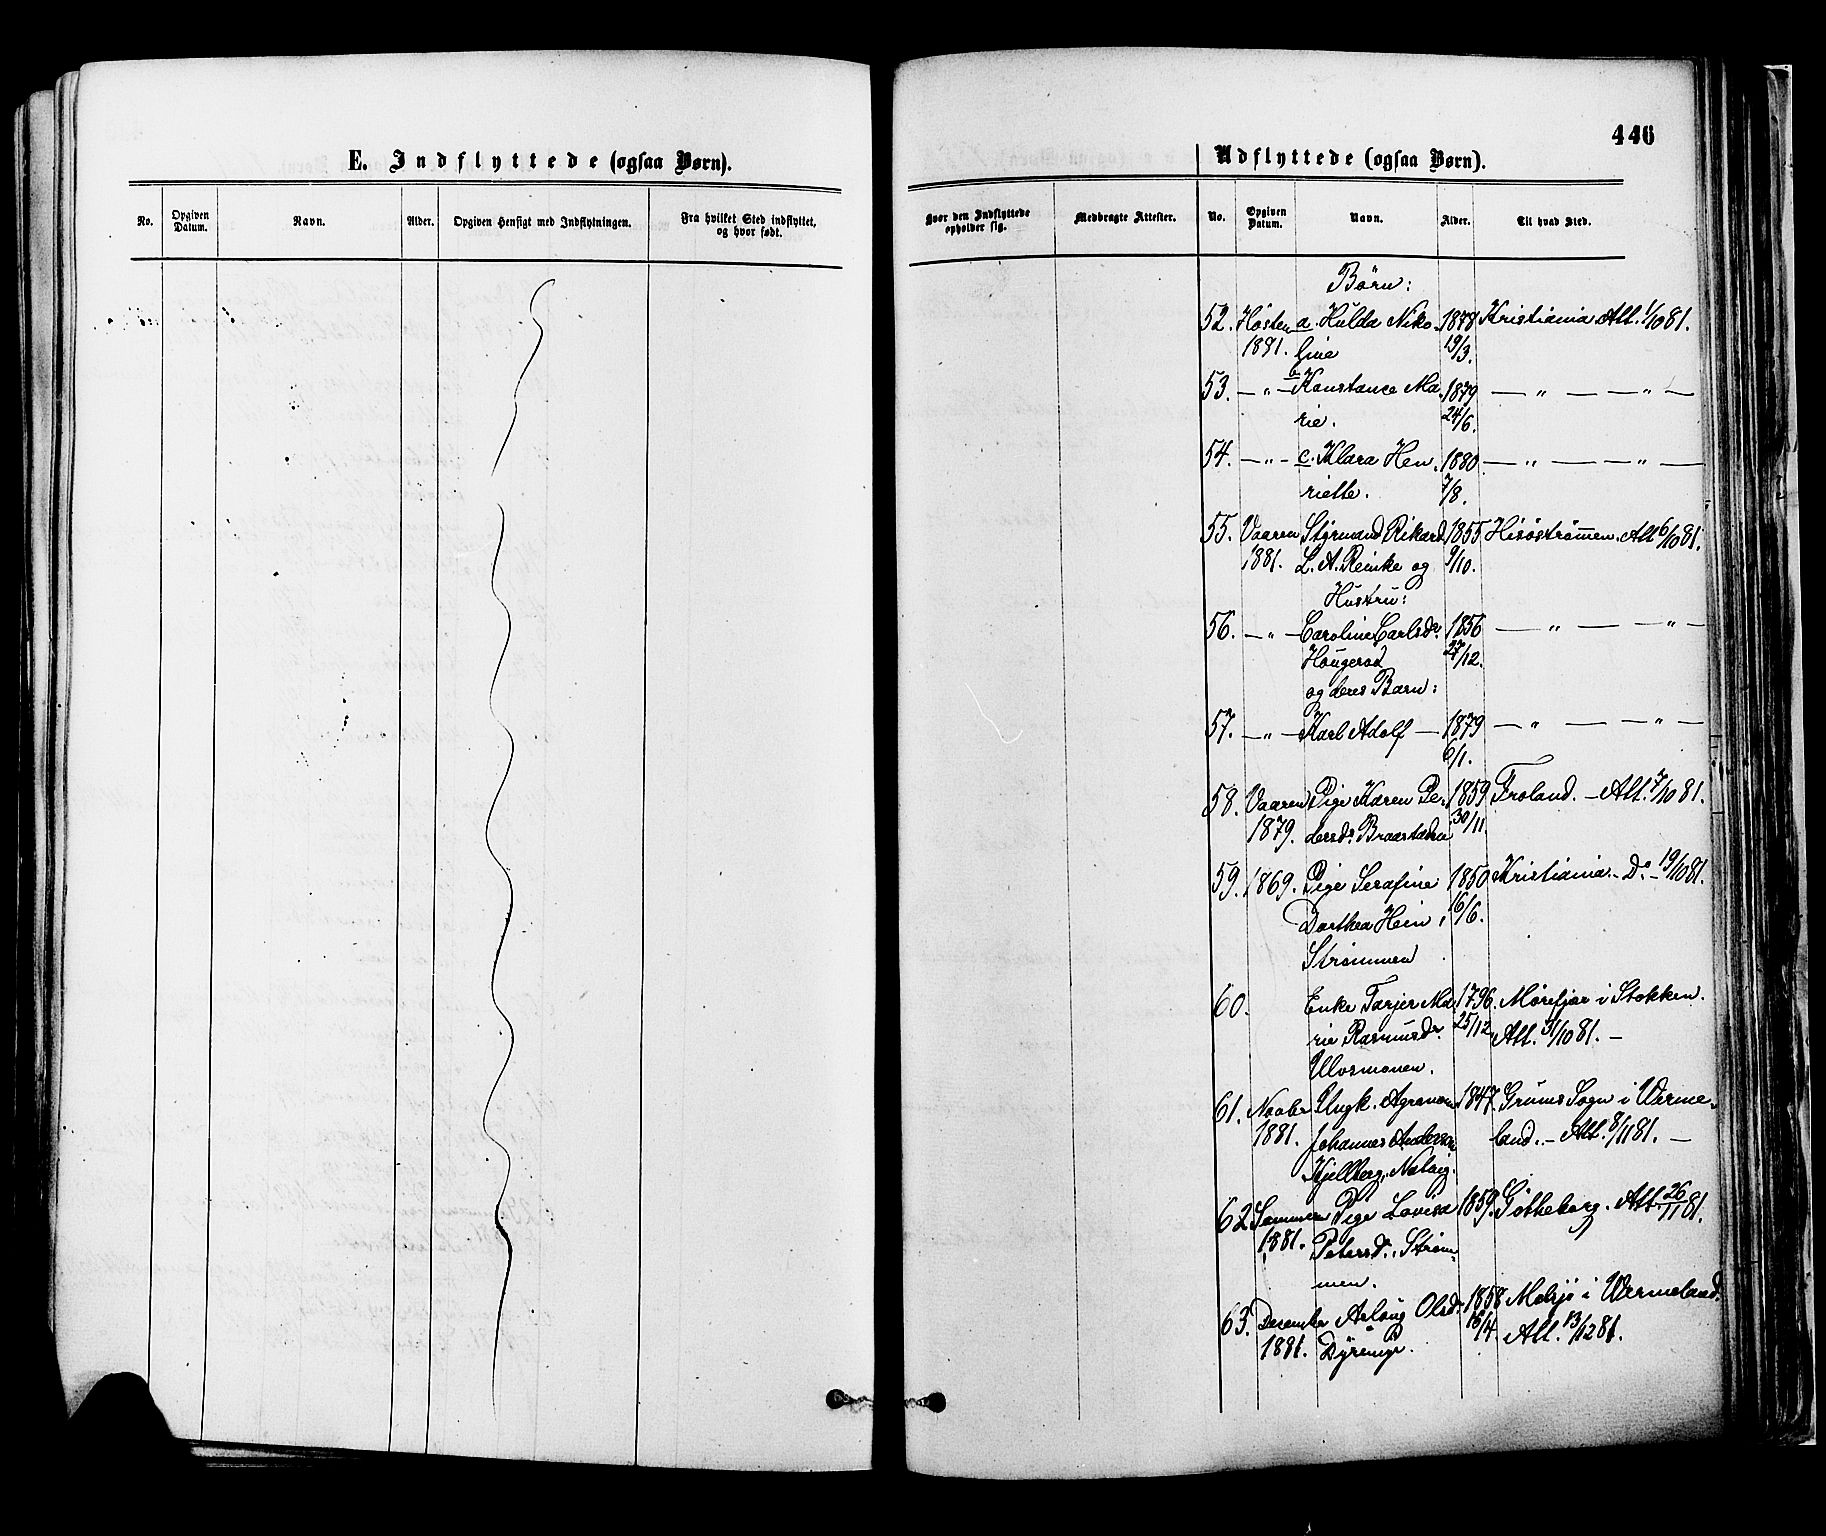 E. Indflyttede (ogsaa Børn).
No. Opgiven Datum. Navn. Alder. Opgiven Hensigt med Indflytningen. Fra hvilket Sted indflyttet, og hvor født.
446
Udflyttede (ogsaa Børn).
Hvor den Indflyttede opholder sig. Medbragte Attester. No. Opgiven Datum. Navn. Alder. Til hvad Sted.
Børn:
52. Høsten a. Hulda Niko- 1878 Kristiania Att. 1/10 81.
1881. line 19/3.
53. — " — b. Konstance Ma- 1879 — " — — " —
rie. 24/6.
54. — " — c. Klara Hen- 1880 — " — — " —
riette. 7/8.
55. Vaaren Styrmand Rikard 1855 Hisøstrømmen. Att 6/10 81.
1881. L. A. Reinke og 9/10.
Hustru:
56. — " — Caroline Carlsdr. 1856 — " — — " —
Haugerød 27/12.
og deres Barn:
57. — " — Karl Adolf — 1879 — " — — " —
6/1.
58. Vaaren Pige Karen Pe- 1859 Froland. — Att. 7/10 81.
1879. dersdr. Braastaden 30/11.
59. 1869. Pige Serafine 1850 Kristiania. — Do — 19/10 81.
Dorthea Hein, 16/6.
Strømmen
60. Enke Tarjer Ma- 1796. Mørefjær i Stokken.
rie Rasmusdr. 25/12 Att. 31/10 81. —
Ulvsmonen.
61. Novbr Ungk. Agronom 1847. Grums Sogn i Werme-
1881. Johannes Anderson land. — Att. 8/11 81. —
Kjellberg, Natvig.
62 Sommeren Pige Lovisa 1859. Gøtheborg. Att. 26/11 81.
1881. Petersdr., Strøm-
men.
63. Desember Aslaug Olsdr. 1858 i Wermeland.
1881. Dyremyr. 16/4. Att. 13/12 81.